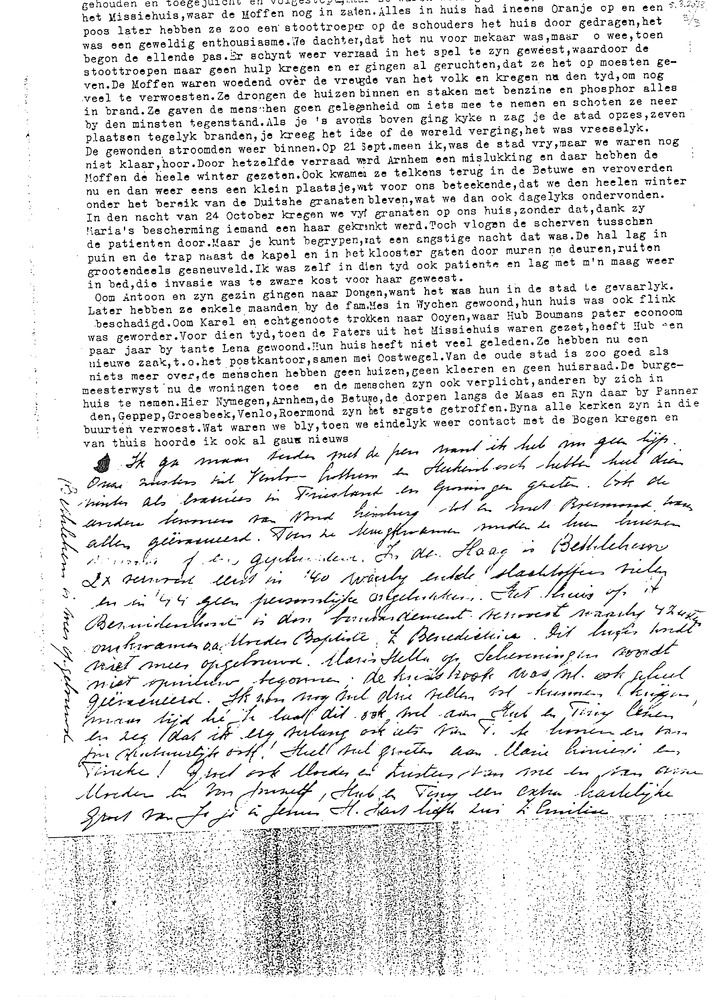 gehouden en toegejuicht en
het Missiehuis,waar de Moffen nog in zaten.Alles in huis had ineens Oranje op en een
poos later hebben ze zoo een stoottroeper op de schouders het huis door gedragen,het
was een geweldig enthousiasme.We dachter,dat het nu voor mekaar was,maar o wee,toen
begon de ellende pas.Er schynt weer verraad in het spel te zyn geweest,waardoor de
stoottroepen maar geen hulp kregen en er gingen al geruchten,dat ze het op moesten ge-
ven.De Moffen waren woedend over de vreugde van het volk en kregen nu den tyd,om nog
veel te verwoesten.Ze drongen de huizen binnen en staken met benzine en phosphor alles
in brand.Ze gaven de menschen geen gelegenheid om iets mee te nemen en schoten ze neer
by den minsten tegenstand.Als je 's avonds boven ging kyke n zag je de stad opzes,zeven
plaatsen tegelyk branden,je kreeg het idee of de wereld verging,het was vreeselyk.
De gewonden stroomden weer binnen.Op 21 Sept.meen ik,was de stad vry,maar we waren nog
niet klaar,hoor.Door hetzelfde verraad werd Arnhem een mislukking en daar hebben de
Moffen de heele winter gezeten.Ook kwamen ze telkens terug in de Betuwe en veroverden
nu en dan weer eens een klein plaatsje,wat voor ons beteekende,dat we den heelen winter
onder het bereik van de Duitshe granaten bleven,wat we dan ook dagelyks ondervonden.
In den nacht van 24 October kregen we vyf granaten op ons huis,zonder dat,dank zy
Maria's bescherming iemand een haar gekrinkt werd.Toch vlogen de scherven tusschen
de patienten door.Maar je kunt begrypen,wat een angstige nacht dat was.De hal lag in
puin en de trap naast de kapel en in het klooster gaten door muren ne deuren,ruiten
grootendeels gesneuveld.Ik was zelf in dien tyd ook patiente en lag met m'n maag weer
in bed,die invasie was te zware kost voor haar geweest.
Oom Antoon en zyn gezin gingen naar Dongen,want het was hun in de stad te gevaarlyk.
Later hebben ze enkele maanden by de fam.Mes in Wychen gewoond,hun huis was ook flink
beschadigd.Oom Karel en echtgenote trokken naar Ooyen,waar Hub Boumans pater econoom
was geworder.Voor dien tyd,toen de Paters uit het Missiehuis waren gezet,heeft Hub een
paar jaar by tante Lena gewoond.Hun huis heeft niet veel geleden.Ze hebben nu een
nieuwe zaak,t.o.het postkantoor,samen met Oostwegel.Van de oude stad is zoo goed als
niets meer over,de menschen hebben geen huizen,geen kleeren en geen huisraad.De burge-
meesterwyst nu de woningen toee en de menschen zyn ook verplicht,anderen by zich in
huis te nemen.Hier Nymegen,Arnhem,de Betuwe,de dorpen langs de Maas en Ryn daar by Panner
den,Geppep,Groesbeek,Venlo,Roermond zyn het ergste getroffen.Byna alle kerken zyn in die
buurten verwoest.Wat waren we bly,toen we eindelyk weer contact met de Bogen kregen en
van thuis hoorde ik ook al gauw nieuws
Ik ga maar verder met de pen want ik heb nu geen lijf.
Onze zusters uit Venlo hebben heel dien
winter als evacuées in Friesland en Groningen gezeten. Ook de
andere bewoners van Noord Limburg tot en met Roermond waren
allen geëvacueerd. Toen ze terugkwamen
In den Haag is Bethlehem
2x verwoest eerst in '40 waarbij enkele slachtoffers vielen
en in '44 geen persoonlijke ongelukken. Het huis op 't
Bezuidenhout is door bombardement verwoest waarbij
omkwamen oa. Moeder Baptiste, Z Benedictine. Dit huis wordt
niet meer opgebouwd. Maris Stella op Scheveningen wordt
niet opnieuw begonnen, de was nl. ook geheel
geëvacueerd. Ik zou nog wel drie vellen vol kunnen krijgen,
maar tijd Je laat dit ook wel aan Hub en Tiny lezen
en zeg dat ik erg verlang ook iets van T. te hooren en van
jou natuurlijk ook! Heel veel groeten aan Marie en
Tineke! Groet ook Moeder en Zusters van me en van onze
Moeder en van Jouzelf, Hub en Tiny een extra hartelijke
groet van Je je in Jezus H. Hart liefh. zus Z Emiline
Bethlehem is weer opgebouwd